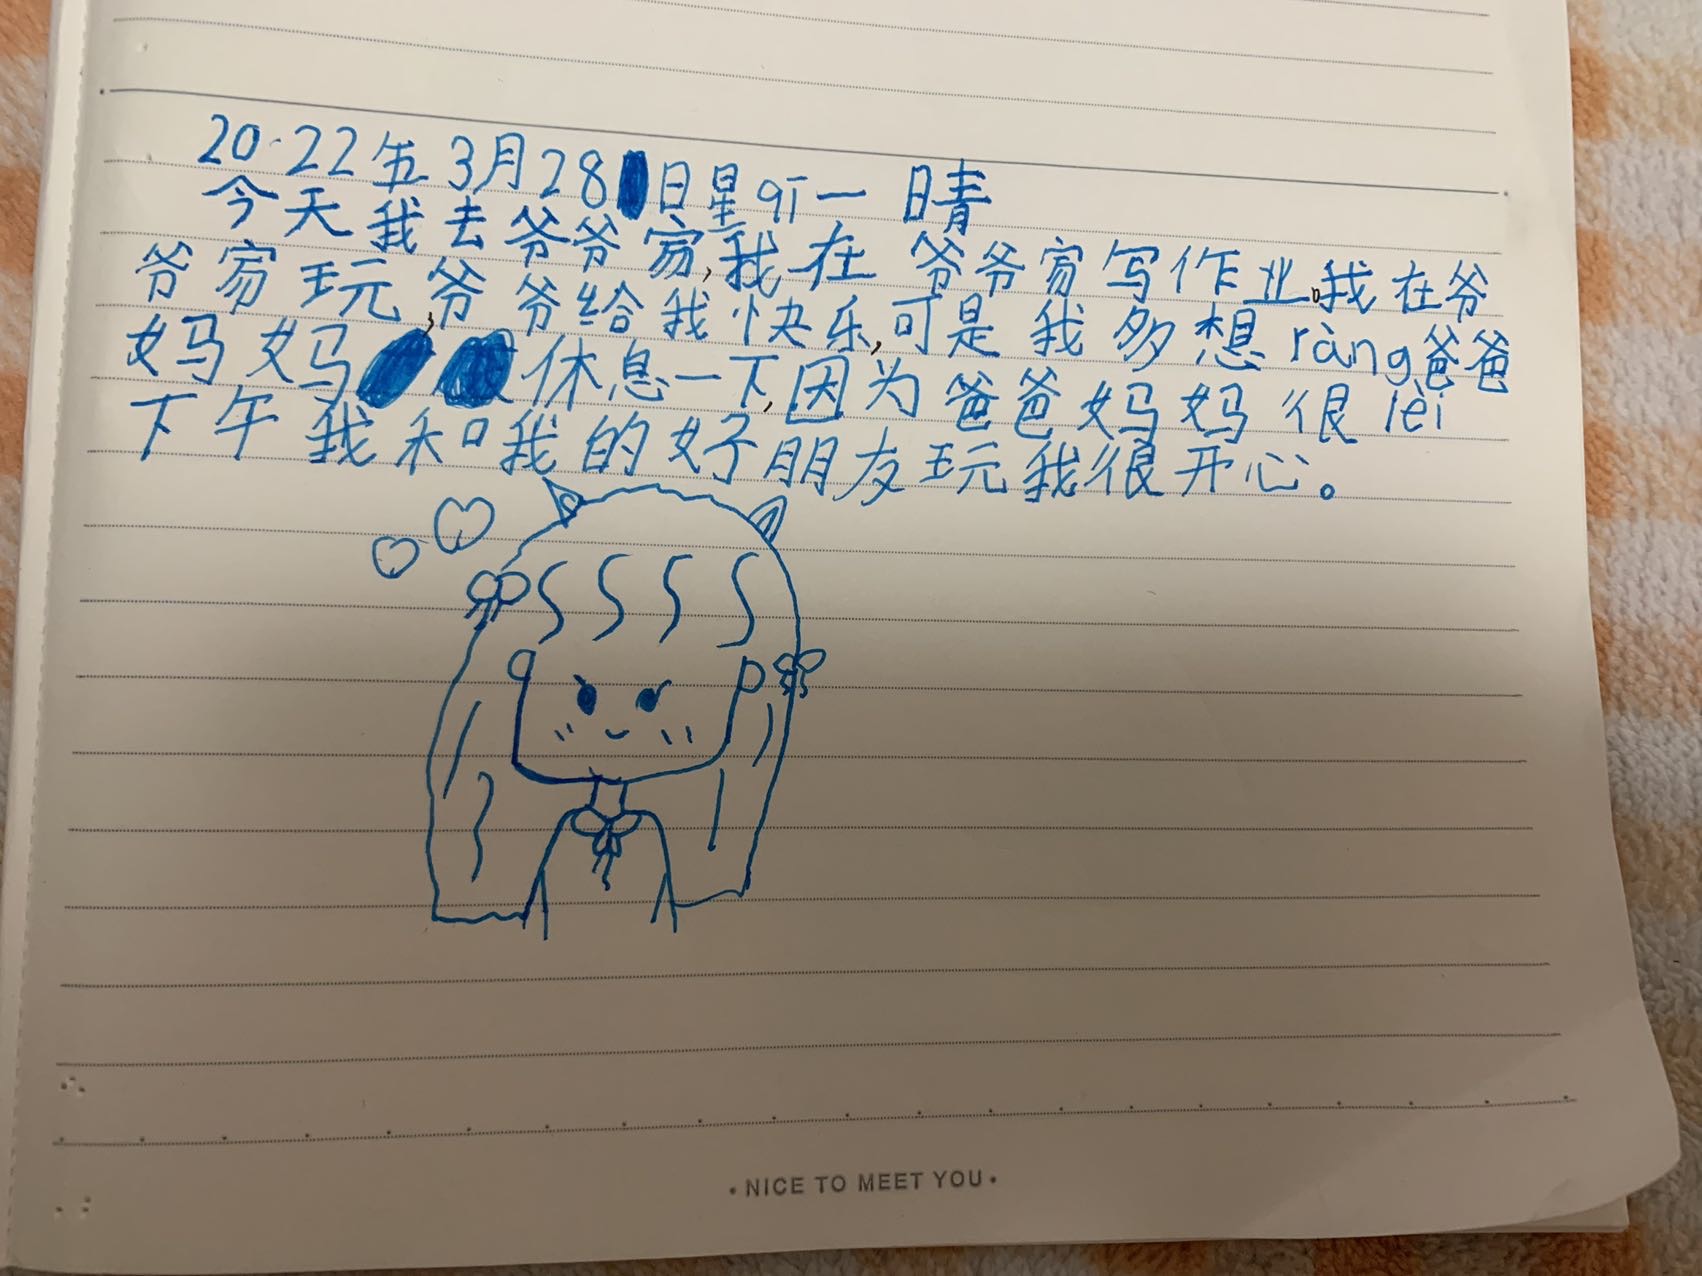 20.22年3月28日星qī一 晴
今天我去爷爷家,我在爷爷家写作业。我在爷
爷家玩,爷爷给我快乐,可是我多想ràng爸爸
妈妈休息一下,因为爸爸妈妈很lèi
下午我和我的好朋友玩我很开心。
• NICE TO MEET YOU •